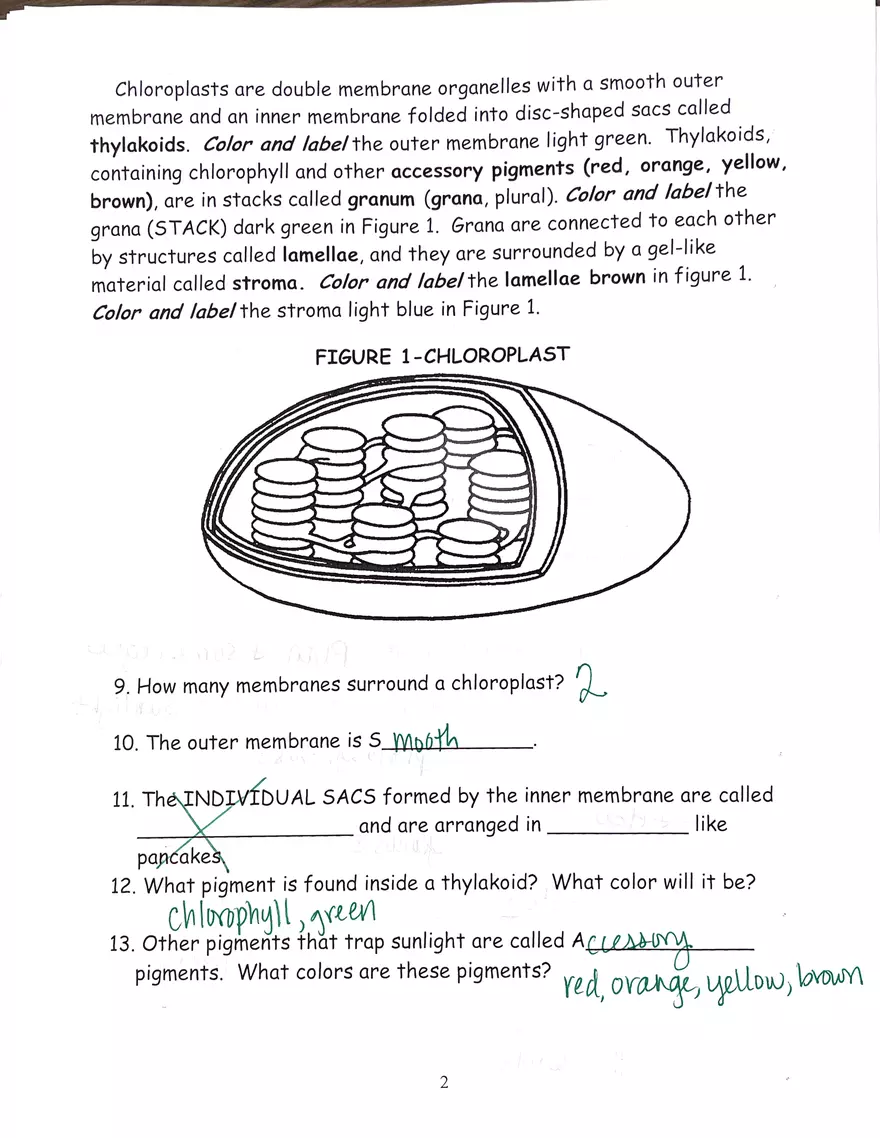 Chloroplasts are double membrane organelles with a smooth outer
membrane and an inner membrane folded into disc-shaped sacs called
thylakoids. Color and label the outer membrane light green. Thylakoids,
containing chlorophyll and other accessory pigments (red, orange, yellow,
brown), are in stacks called granum (grana, plural). Color and label the
grana (STACK) dark green in Figure 1. Grana are connected to each other
by structures called lamellae, and they are surrounded by a gel-like
material called stroma. Color and label the lamellae brown in figure 1.
Color and label the stroma light blue in Figure 1.
FIGURE 1-CHLOROPLAST
9. How many membranes surround a chloroplast? 2
10. The outer membrane is Smooth.
11. The INDIVIDUAL SACS formed by the inner membrane are called
____________________ and are arranged in _____________ like
pancakes
12. What pigment is found inside a thylakoid? What color will it be?
chlorophyll, green
13. Other pigments that trap sunlight are called Accessory
pigments. What colors are these pigments? red, orange, yellow, brown
2